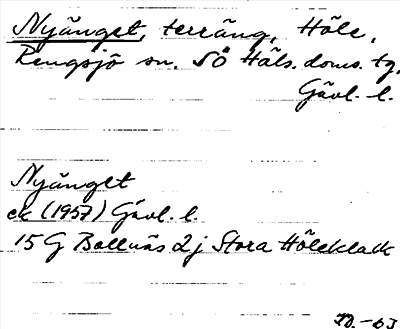 Nyänget, terräng, Höle,
Rengsjö sn. SÖ Häls. doms. tg.
Gävl. l.
Nyänget
ek (1957) Gävl. l.
15 G Bollnäs 2 j Stora Höleklack
-63